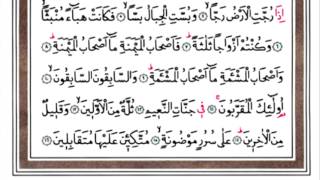 إِذَا رُجَّتِ الْأَرْضُ رَجًّا وَبُسَّتِ الْجِبَالُ بَسًّا فَكَانَتْ هَبَاءً مُنْبَثًّا
وَكُنْتُمْ أَزْوَاجًا ثَلَثَةً فَأَصْحَابُ الْمَيْمَنَةِ مَا أَصْحَابُ الْمَيْمَنَةِ
وَأَصْحَابُ الْمَشْئَمَةِ مَا أَصْحَابُ الْمَشْئَمَةِ وَالسَّابِقُونَ السَّابِقُونَ
أُولَئِكَ الْمُقَرَّبُونَ فِي جَنَّاتِ النَّعِيمِ ثُلَّةٌ مِنَ الْأَوَّلِينَ وَقَلِيلٌ
مِنَ الْآخِرِينَ عَلَى سُرُرٍ مَوْضُونَةٍ مُتَّكِئِينَ عَلَيْهَا مُتَقَابِلِينَ